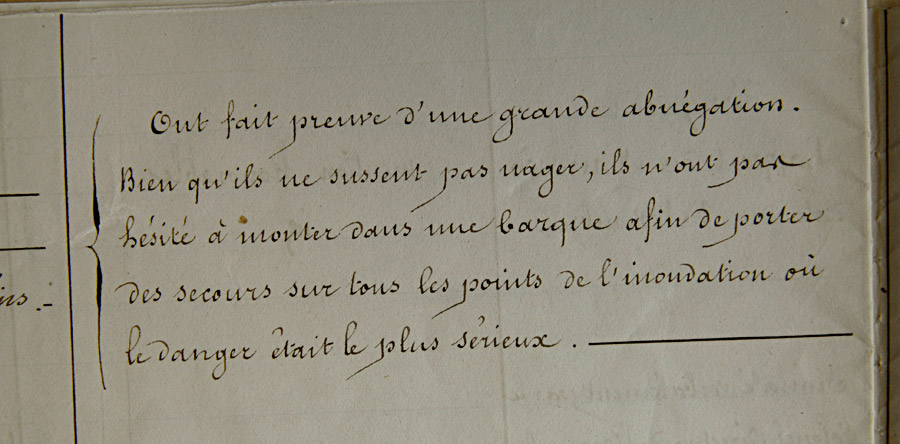 Ont fait preuve d'une grande abnégation.
Bien qu'ils ne sussent pas nager, ils n'ont pas
hésité à monter dans une barque afin de porter
des secours sur tous les points de l'inondation où
le danger était le plus sérieux.